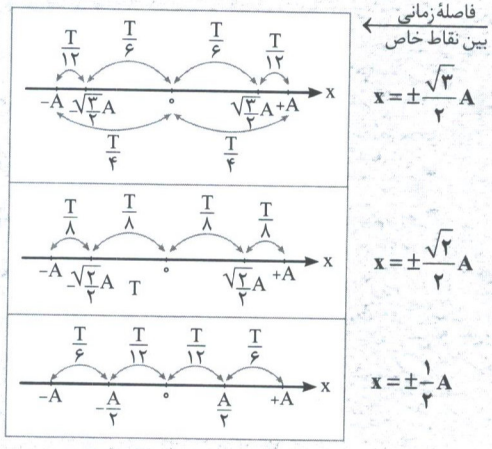 فاصلهٔ زمانی
بین نقاط خاص
T/۱۲ T/۶ T/۶ T/۱۲
−A −√۳/۲ A ° √۳/۲ A +A x
T/۴ T/۴
x = ± √۳/۲ A
T/۸ T/۸ T/۸ T/۸
−A −√۲/۲ A T ° √۲/۲ A +A x
x = ± √۲/۲ A
T/۶ T/۱۲ T/۱۲ T/۶
−A −A/۲ ° A/۲ +A x
x = ± ۱/۲ A